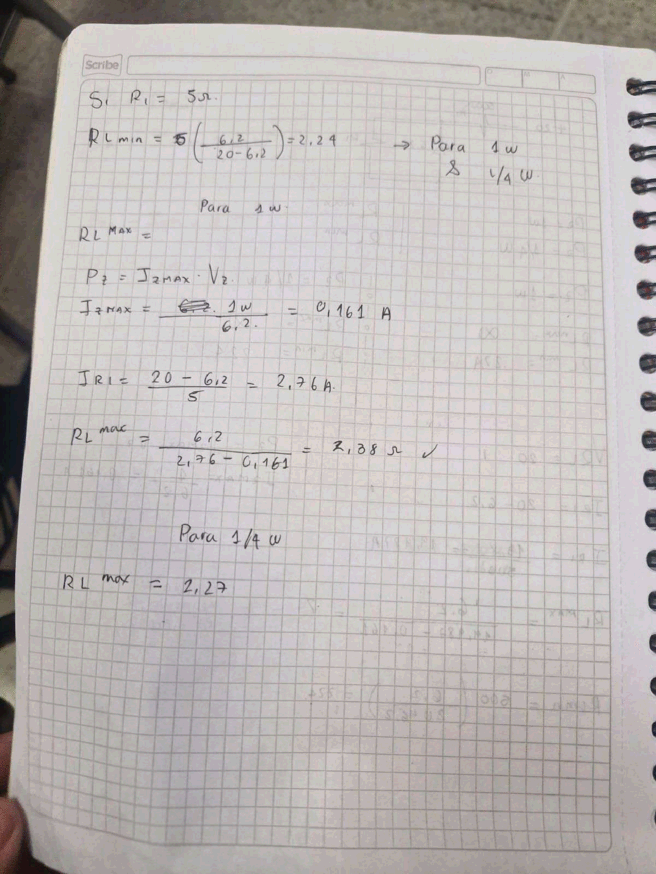 Scribe
Si R1 = 5Ω.
RL min = 5 (6,2 / 20-6,2) = 2,24 → Para 1w
& 1/4 w
Para 1w.
RL Max =
Pz = IzMAX · Vz.
IzMAX = 1w / 6,2. = 0,161 A
IR1 = 20 - 6,2 / 5 = 2,76A.
RL max = 6,2 / 2,76 - 0,161 = 2,38 Ω ✓
Para 1/4 w
RL max = 2,27